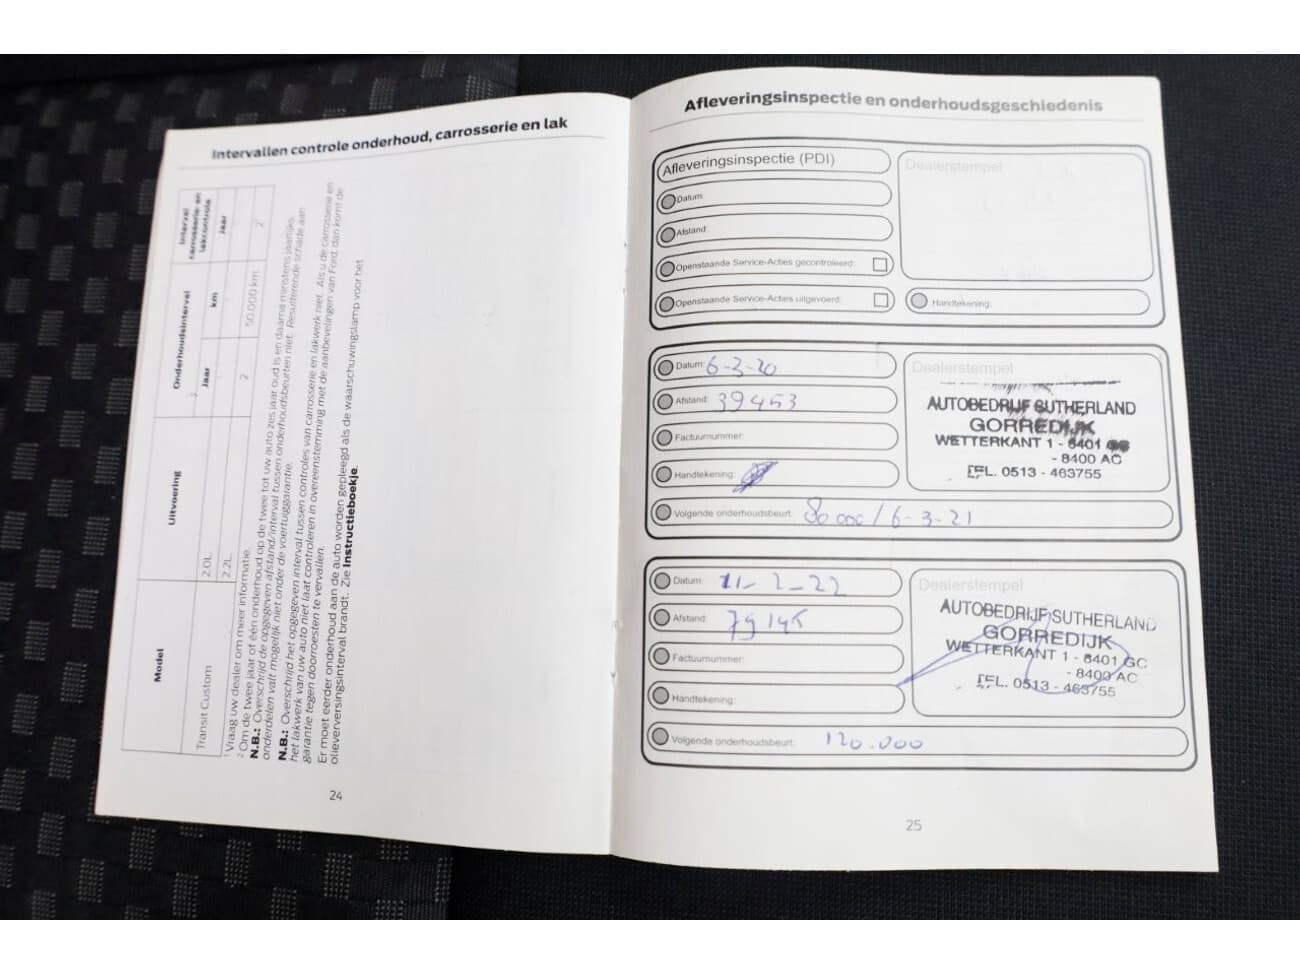 Intervallen controle onderhoud, carrosserie en lak
Model
Uitvoering
Onderhoudsinterval
Interval carrosserie en lakcontrole
Jaar
km
Jaar
Transit Custom
2.0L
2.2L
2
50.000 km
2
¹ Vraag uw dealer om meer informatie.
² Om de twee jaar of één onderhoud op de twee tot uw auto zes jaar oud is en daarna minstens jaarlijks.
N.B.: Overschrijd de opgegeven afstand/interval tussen onderhoudsbeurten niet. Resulterende schade aan
onderdelen valt mogelijk niet onder de voertuiggarantie.
N.B.: Overschrijd het opgegeven interval tussen controles van carrosserie en lakwerk niet. Als u de carrosserie en
het lakwerk van uw auto niet laat controleren in overeenstemming met de aanbevelingen van Ford, dan komt de
garantie tegen doorroesten te vervallen.
Er moet eerder onderhoud aan de auto worden gepleegd als de waarschuwingslamp voor het
olieverversingsinterval brandt. Zie Instructieboekje.
24
Afleveringsinspectie en onderhoudsgeschiedenis
Afleveringsinspectie (PDI)
Datum:
Afstand:
Openstaande Service-Acties gecontroleerd:
Openstaande Service-Acties uitgevoerd:
Dealerstempel
Handtekening:
Datum: 6-3-20
Afstand: 39453
Factuurnummer:
Handtekening:
Volgende onderhoudsbeurt: 80 000 / 6-3-21
Dealerstempel
AUTOBEDRIJF SUTHERLAND
GORREDIJK
WETTERKANT 1 - 8401
- 8400 AC
TEL. 0513 - 463755
Datum: 11-2-22
Afstand: 79145
Factuurnummer:
Handtekening:
Volgende onderhoudsbeurt: 120.000
Dealerstempel
AUTOBEDRIJF SUTHERLAND
GORREDIJK
WETTERKANT 1 - 8401 GC
- 8400 AC
TEL. 0513 - 463755
25